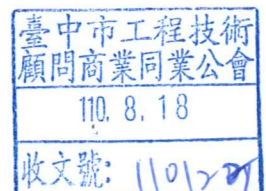 臺中市工程技術
顧問商業同業公會
110. 8. 18
收文號: